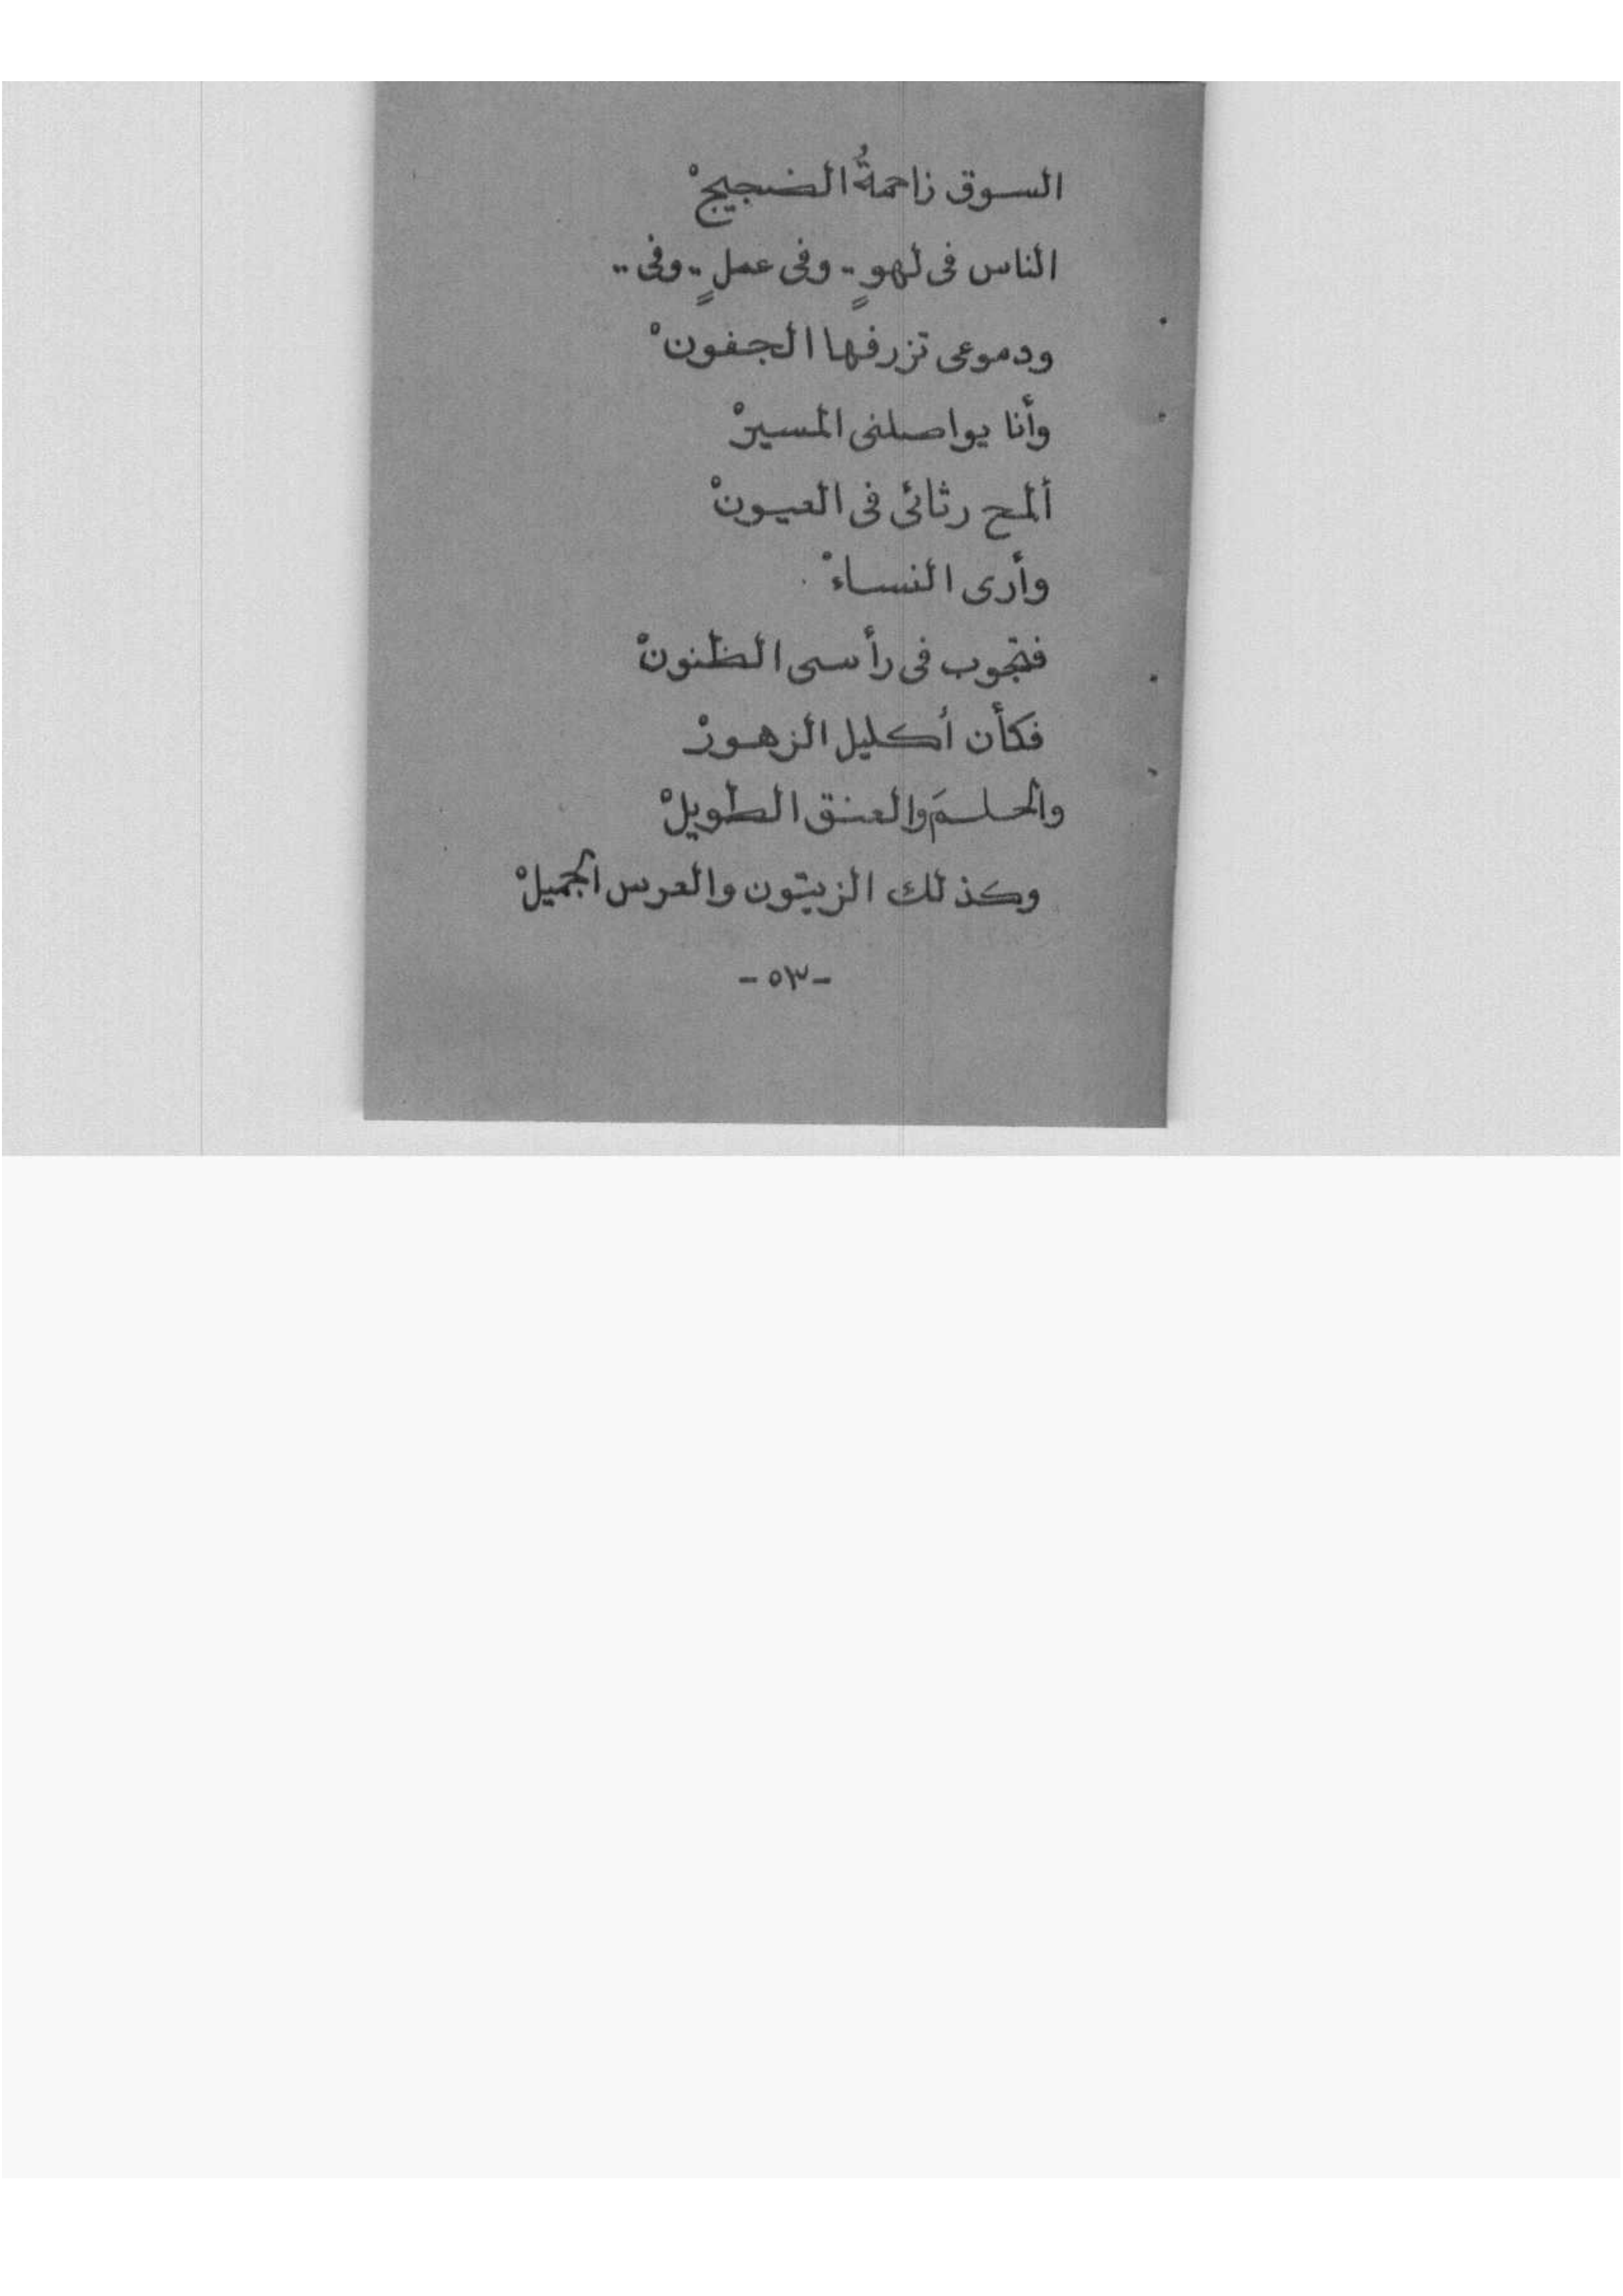 السوق زاحمةُ الضجيجْ
الناس فى لهوٍ .. وفى عملٍ .. وفى ..
ودموعى تزرفها الجفونْ
وأنا يواصلنى المسيرْ
ألمح رثائى فى العيونْ
وأرى النساءْ
فتجوب فى رأسى الظنونْ
فكأن أكليل الزهورْ
والحلمَ والعنق الطويلْ
وكذلك الزيتون والعرس الجميلْ
- ٥٣ -